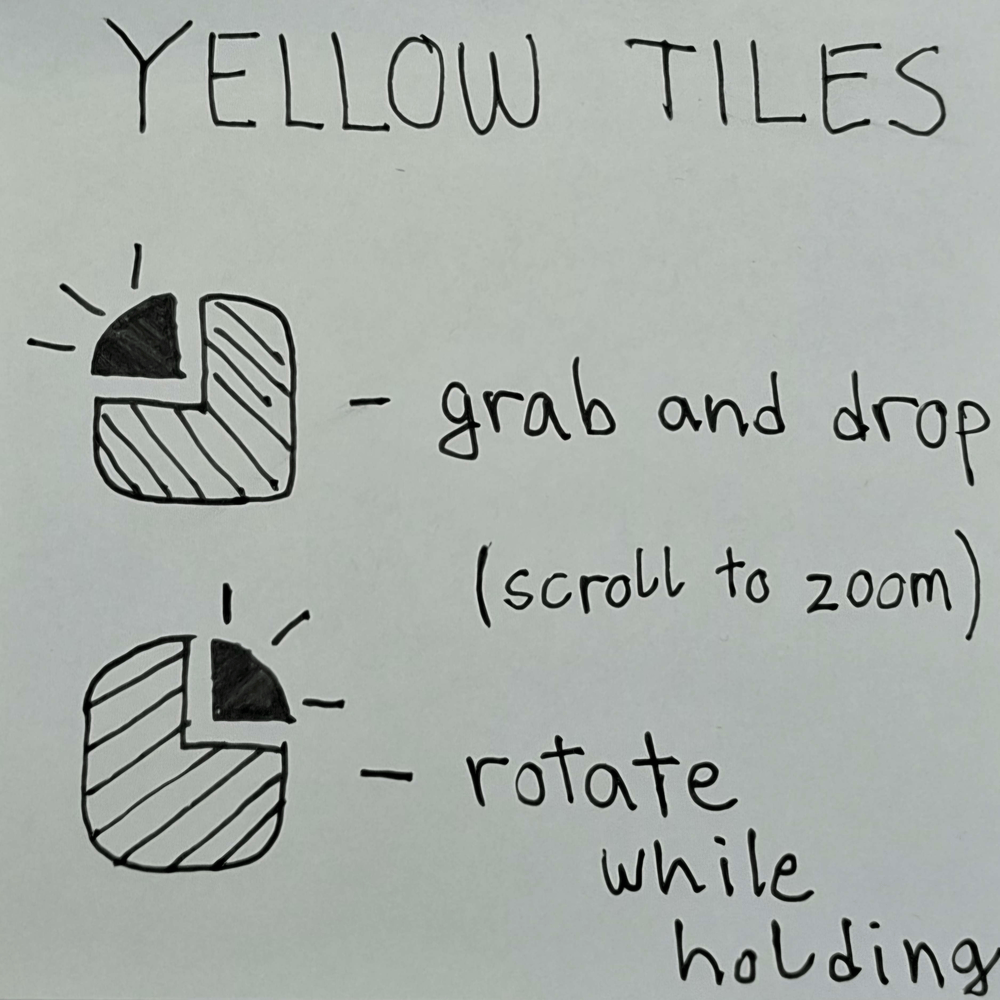 YELLOW TILES
- grab and drop
(scroll to zoom)
- rotate
while
holding